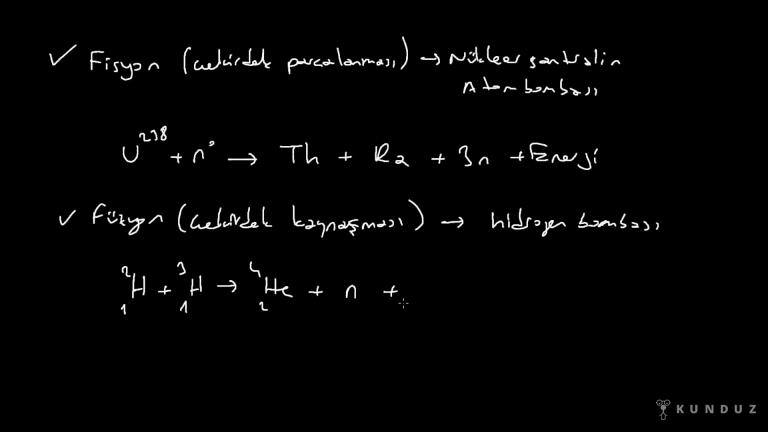 ✓ Fisyon (çekirdek parçalanması) → Nükleer santralin
Atom bombası
U²³⁸ + n° → Th + Ra + 3n + Enerji
✓ Füzyon (çekirdek kaynaşması) → hidrojen bombası
²₁H + ³₁H → ⁴₂He + n +
KUNDUZ